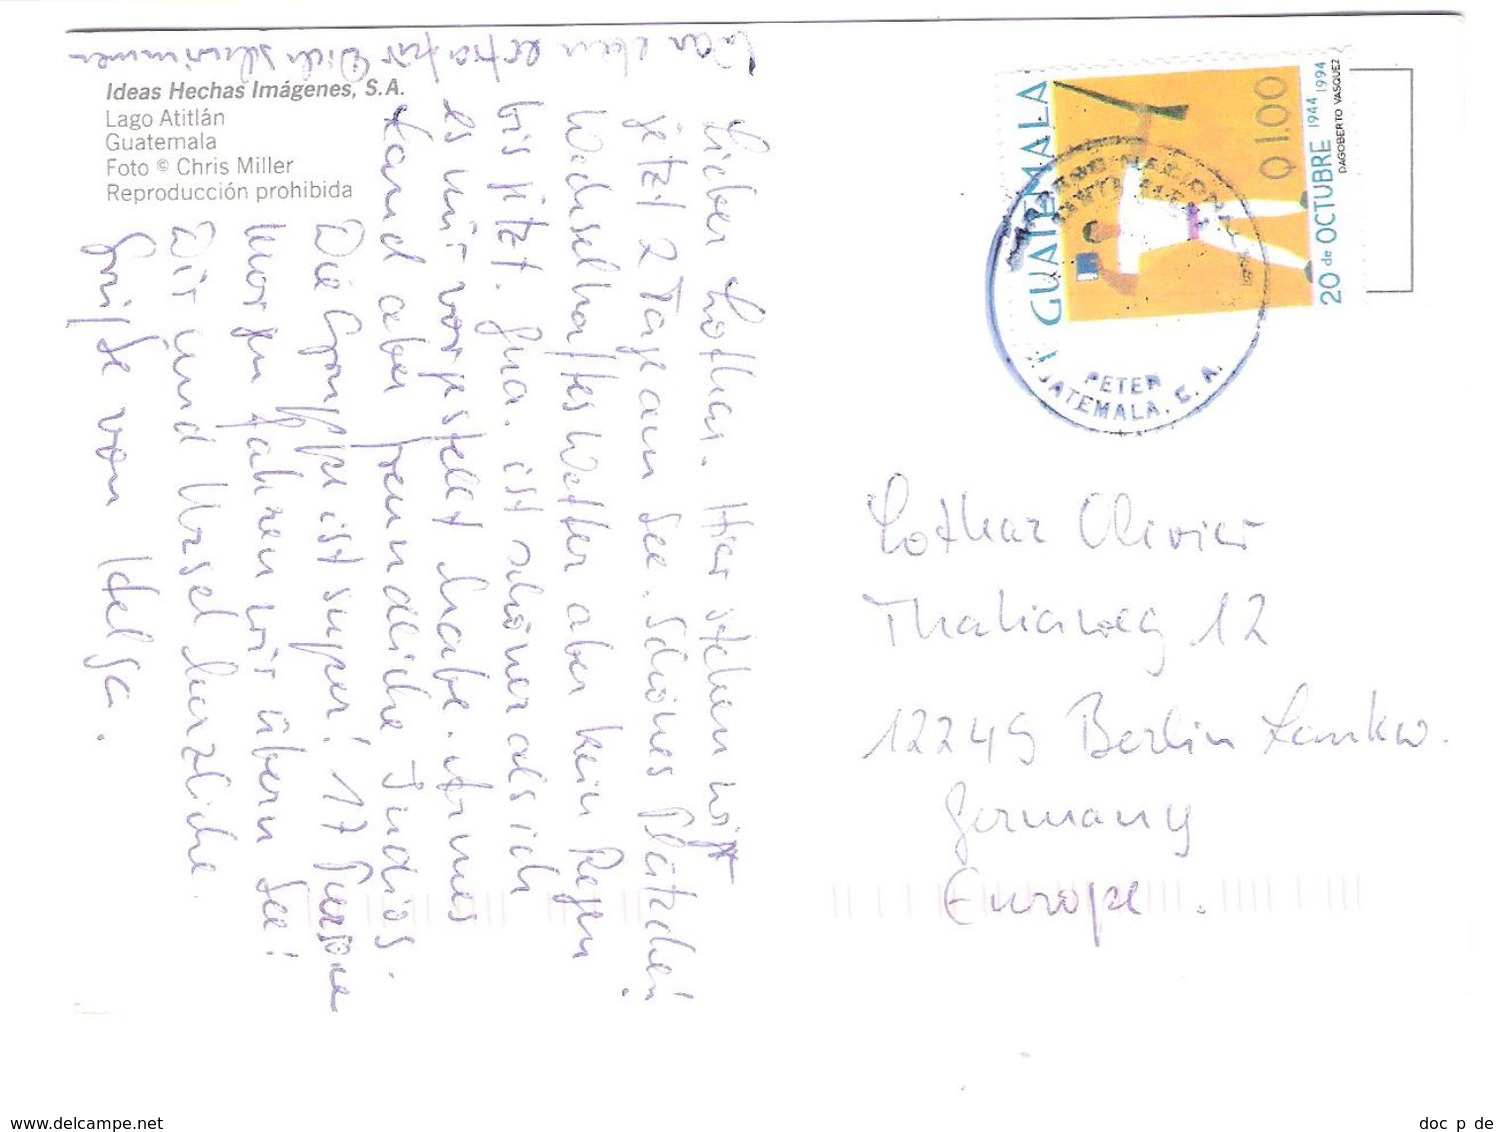 War eben extra für Dich schwimmen
Ideas Hechas Imágenes, S.A.
Lago Atitlán
Guatemala
Foto © Chris Miller
Reproducción prohibida
Lieber Lothar. Hier stehen wir
jetzt 2 Tage am See. Schönes Plätzchen!
Wechselhaftes Wetter aber kein Regen
bis jetzt. Gua. ist schöner als ich
es mir vorgestellt habe. Armes
Land aber freundliche Indios.
Die Gruppe ist super! 17
Morgen fahren wir übern See!
Dir und Ursel herzliche
Grüße von Helga.
GUATEMALA
Q 1.00
20 de OCTUBRE 1944 1994
DAGOBERTO VASQUEZ
PETEN
GUATEMALA, C. A.
Lothar Olivier
Thaliaweg 12
12249 Berlin Lankw.
Germany
Europe.
www.delcampe.net
doc_p_de